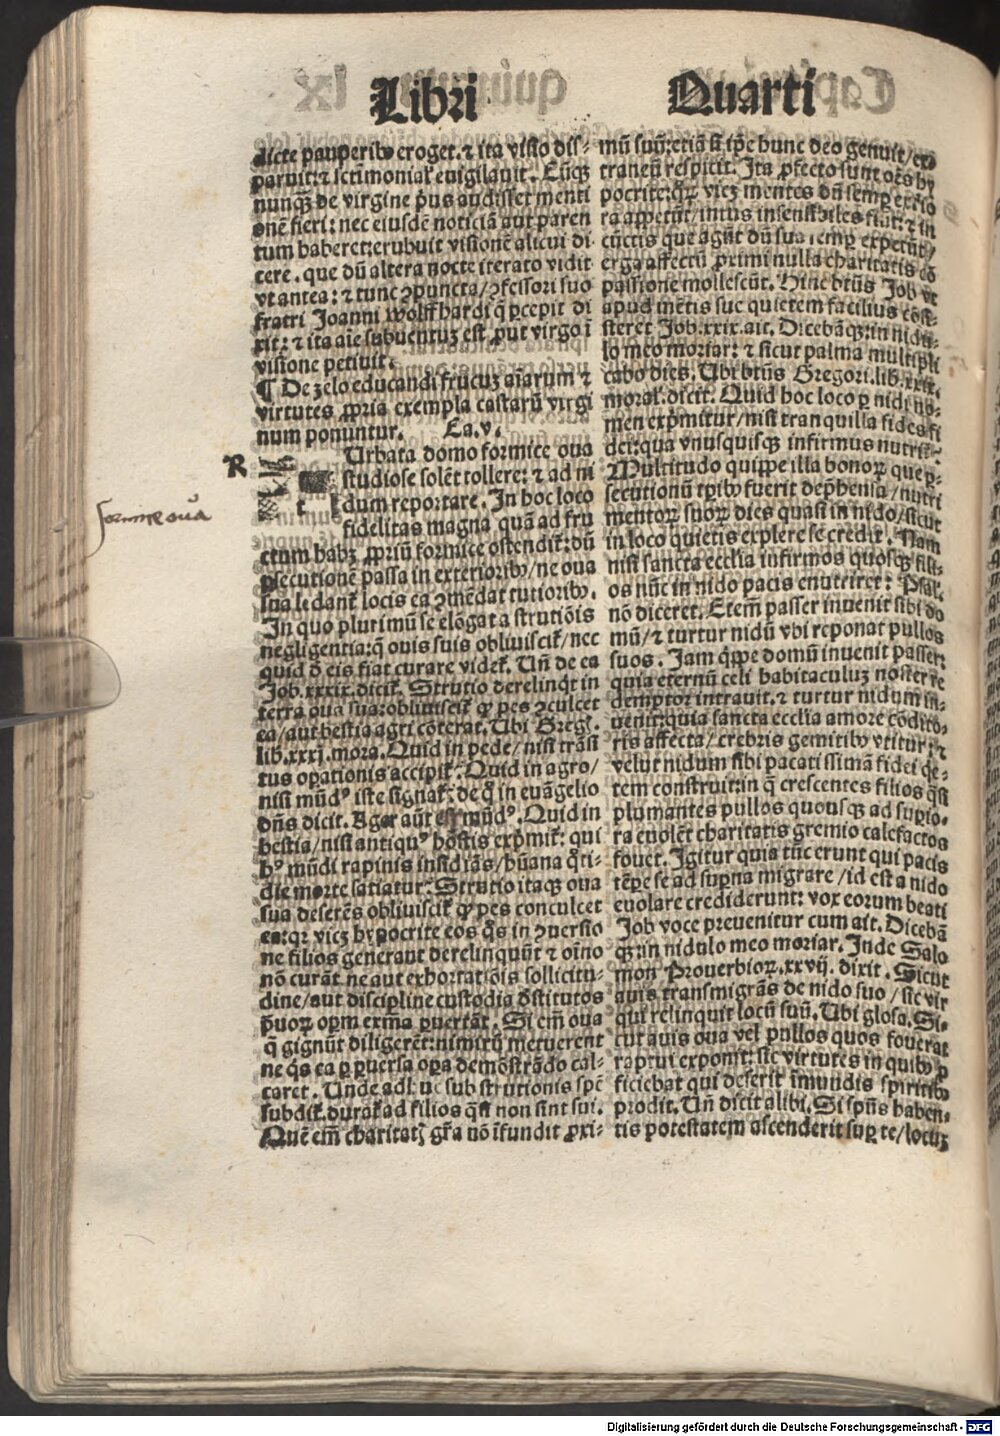 Libri Quarti
dicte pauperibꝰ eroget. ⁊ ita visio dis-
paruit: ⁊ scrimonial' euigilauit. Cũqꝫ
nunqꝫ de virgine p̃us audisset menti
onẽ fieri: nec eiusdẽ noticiã aut paren
tum haberet: erubuit visionẽ alicui di
cere. que dũ altera nocte iterato vidit
vt antea: ⁊ tunc ꝯpuncta/ ꝯfessori suo
fratri Joanni wolffhardi q̃ p̱cepit di
xit: ⁊ ita aĩe subuentuꝫ est ꝓut virgo ĩ
visione petiuit.
¶ De zelo educandi fructuꝫ aĩarum ⁊
virtutes ꝓpria exempla castarũ virgi
num ponuntur. Ca.v.
R
Urbata domo formice oua
studiose solẽt tollere: ⁊ ad ni
t dum reportare. In hoc loco
formice oua
fidelitas magna quã ad fru
ctum habꝫ ꝓpriũ formice ostendit̃: dũ
p̱secutionẽ passa in exterioribꝰ/ ne oua
sua ledant̃ locis ea ꝯmẽdat tutioribꝰ.
In quo plurimũ se elõgat a strutiõis
negligentia: q̃ ouis suis obliuiscit̃/ nec
quid ð eis fiat curare videt̃. Uñ de ea
Job.xxxix.dicit̃. Strutio derelinq̃t in
terra oua sua: obliuiscit̃ ꝙ pes ꝯculcet
ea/ aut bestia agri cõterat. Ubi Greg̃.
lib.xxxj.mora. Quid in pede/ nisi trãsi
tus oꝑationis accipit̃: Quid in agro/
nisi mũdꝰ iste signat̃: de q̃ in euãgelio
dñs dicit. Ager aũt est mũdꝰ. Quid in
bestia/ nisi antiquꝰ hostis exp̃mit̃: qui
hꝰ mũdi rapinis insidiãs/ hũana q̃ti-
die morte satiatur: Strutio itaqꝫ oua
sua deserẽs obliuiscit̃ ꝙ pes conculcet
ea: qꝛ vicꝫ hypocrite eos q̃s in ꝯuersio
ne filios generant derelinquũt ⁊ oĩno
nõ curãt ne aut exhortatiõis sollicitu-
dine/ aut discipline custodia ðstitutos
p̃uoꝝ oꝑm exẽpla ꝑuertãt. Si eĩ oua
q̃ gignũt diligerẽt: nimiꝝ metuerent
ne q̃s ea ꝑ ꝑuersa oꝑa demõstrãdo cal-
caret. Unde adhuc sub strutionis spẽ
subdit̃. durat̃ ad filios q̃si non sint sui.
Quẽ eĩ charitatꝭ gr̃a nõ ĩfundit ꝓxi-
mũ suũ: etiã si ip̃e hunc deo genuit/ ex
traneũ respicit. Ita ꝓfecto sunt oẽs hy
pocrite: qꝛ vicꝫ mentes dũ semꝑ exterio
ra appetũt/ intus insensibiles fiũt: ⁊ in
cũctis que agũt dũ sua semꝑ expetũt/
erga affectũ ꝓximi nulla charitatis cõ
passione mollescũt. Hinc btũs Job vt
apud mẽtis sue quietem facilius cõsi-
steret Job.xxix.ait. Dicebãqꝫ: in nidu-
lo meo moriar: ⁊ sicut palma multipli
cabo dies. Ubi btũs Gregori.lib.xxix.
moral'.dicit. Quid hoc loco ꝑ nidi no-
men exp̃mitur/ nisi tranquilla fides fi
dei: qua vnusquisqꝫ infirmus nutrit̃:
Multitudo quippe illa bonoꝝ que ꝑ-
secutionũ tꝑibꝰ fuerit dep̃hensa/ nutri
mentoꝝ suoꝝ dies quasi in nido/ sicut
in loco quietis explere se credit. Nam
nisi sancta ecclia infirmos quosqꝫ fili-
os nũc in nido pacis enutriret: Psal.
nõ diceret. Eteñ passer inuenit sibi do
mũ/ ⁊ turtur nidũ vbi reponat pullos
suos. Jam q̃ppe domũ inuenit passer:
quia eternũ celi habitaculuꝫ noster re
demptor intrauit. ⁊ turtur nidum in-
uenit: quia sancta ecclia amore cõdito-
ris affecta/ crebris gemitibꝰ vtitur: ⁊
velut nidum sibi pacatissimã fidei qe-
tem construit: in q̃ crescentes filios q̃si
plumantes pullos quousqꝫ ad suꝑio-
ra euolẽt charitatis gremio calefactos
fouet. Igitur quia tũc erunt qui pacis
tẽꝑe se ad suꝑna migrare/ id est a nido
euolare crediderunt: vox eorum beati
Job voce preuenitur cum ait. Dicebã
qꝫ: in nidulo meo moriar. Inde Salo
mon Prouerbioꝝ.xxvij. dixit. Sicut
auis transmigrãs de nido suo/ sic vir
qui relinquit locũ suũ. Ubi glosa. Si-
cut auis oua vel pullos quos fouerat
raptui exponit: sic virtutes in quibꝰ ꝓ
ficiebat qui deserit ĩmundis spiritibꝰ
prodit. Uñ dicit alibi. Si spũs haben-
tis potestatem ascenderit suꝑ te/ locuꝫ
Digitalisierung gefördert durch die Deutsche Forschungsgemeinschaft - DFG